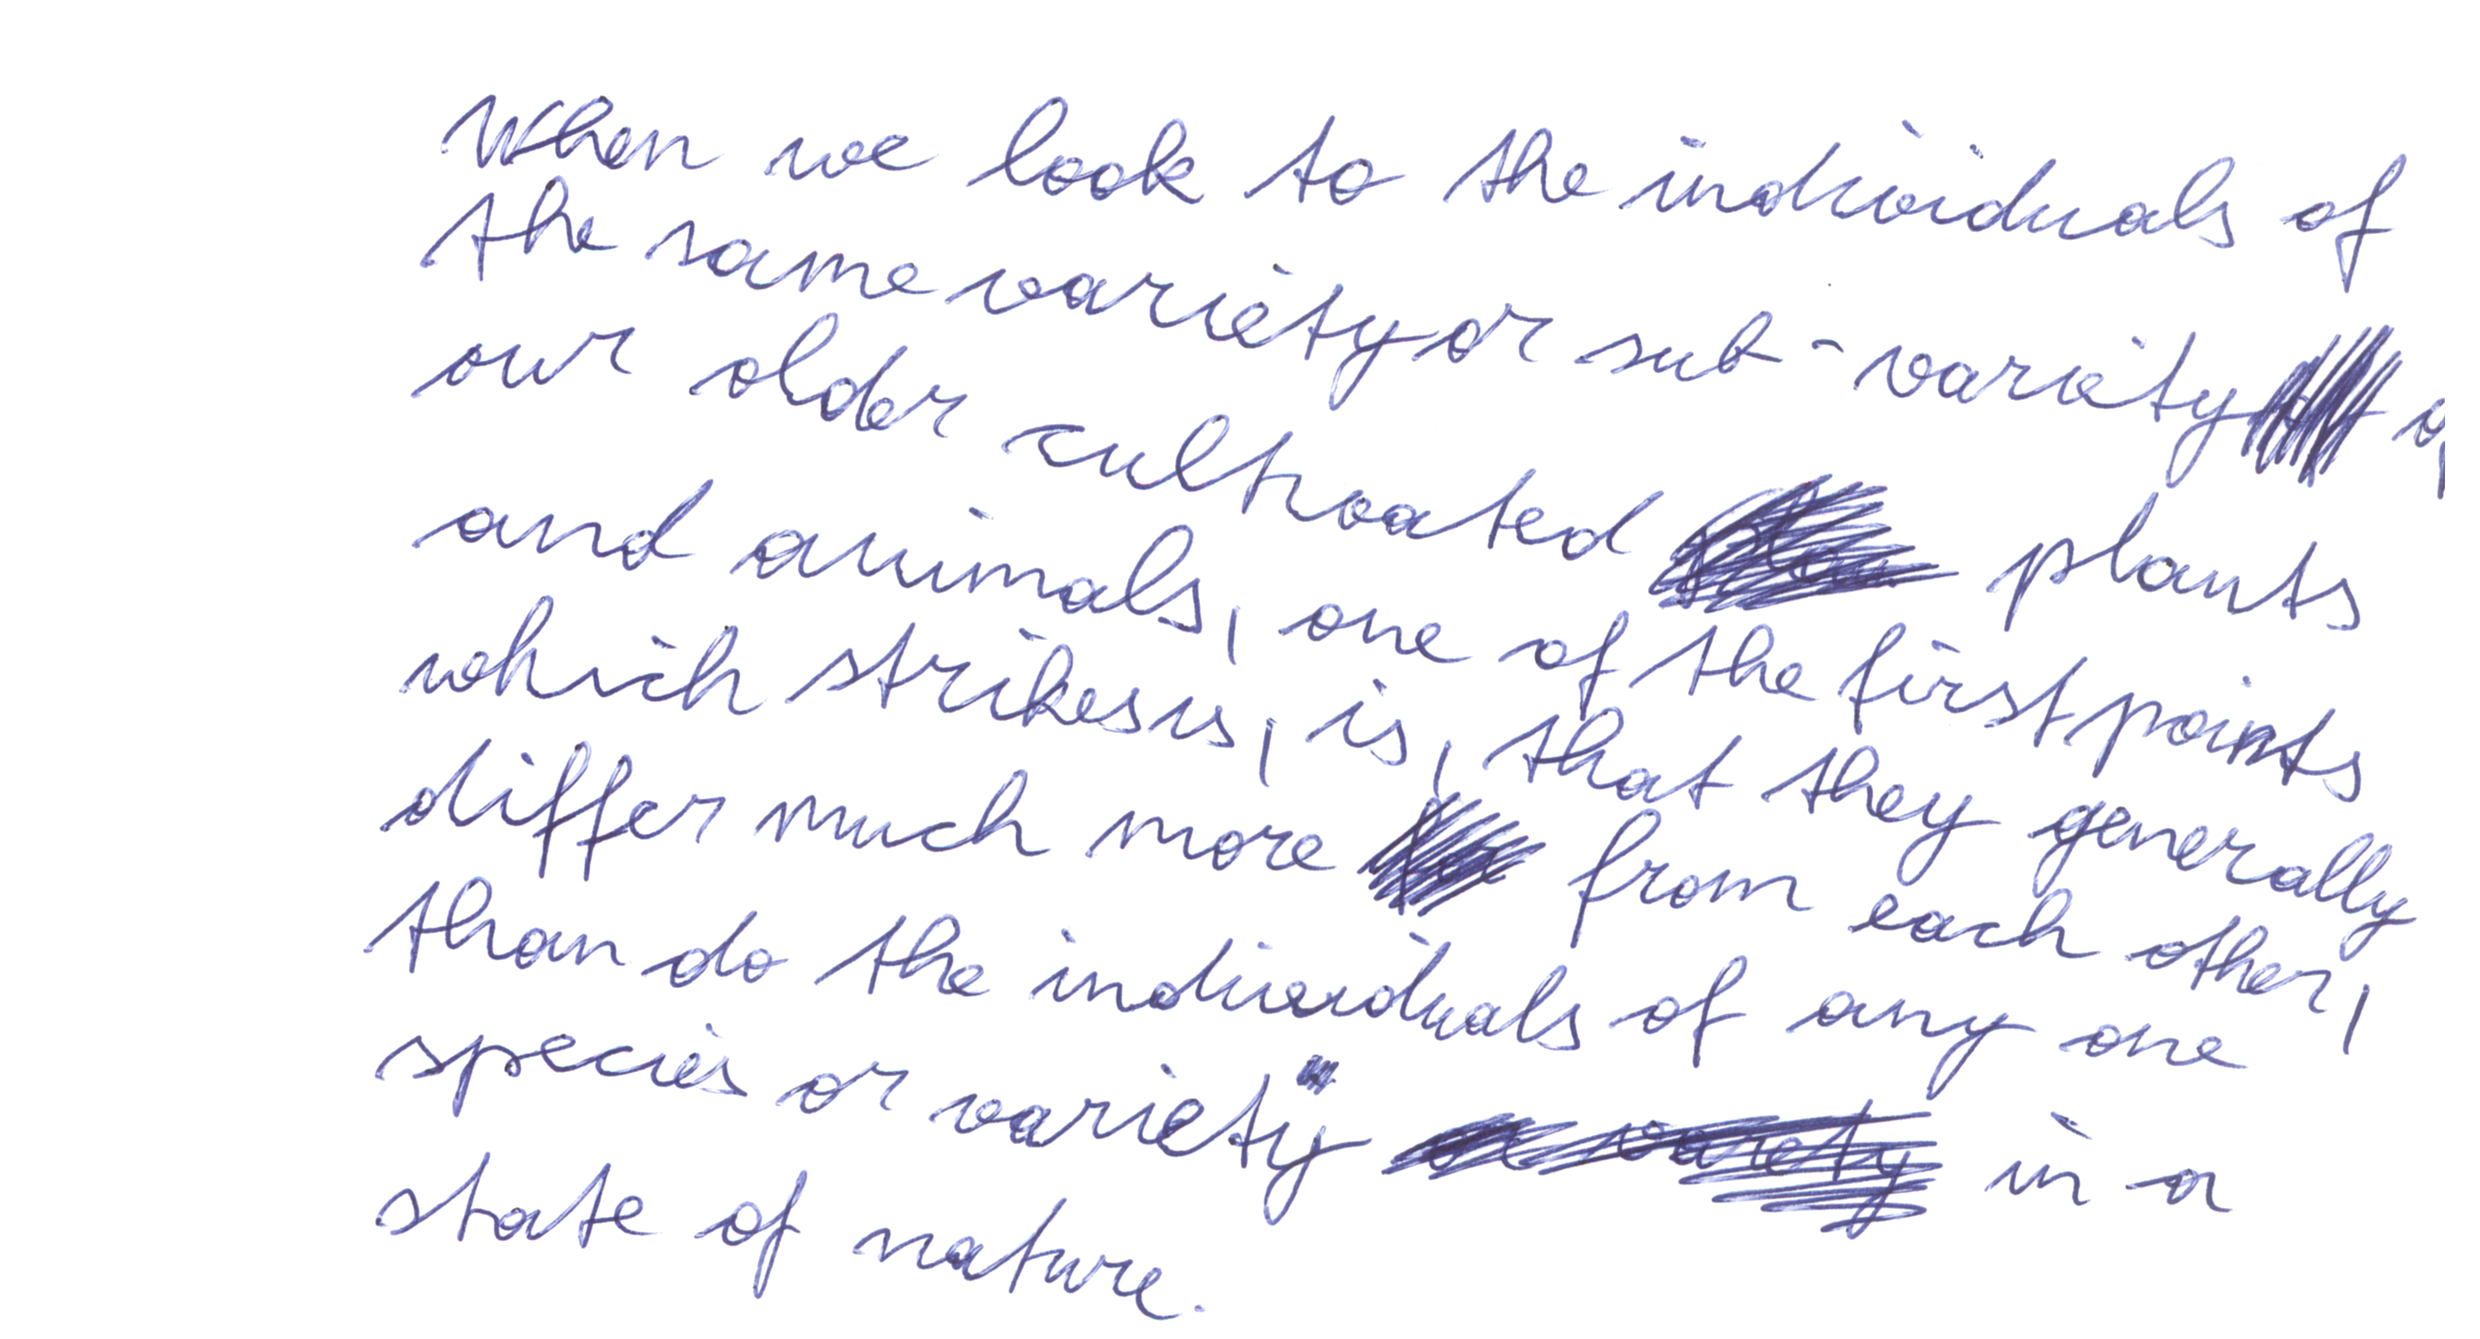 When we look to the individuals of
the same variety or sub-variety
our older cultivated plants
and animals, one of the first points
which strikes us, is, that they generally
differ much more from each other,
than do the individuals of any one
species or variety in a
state of nature.